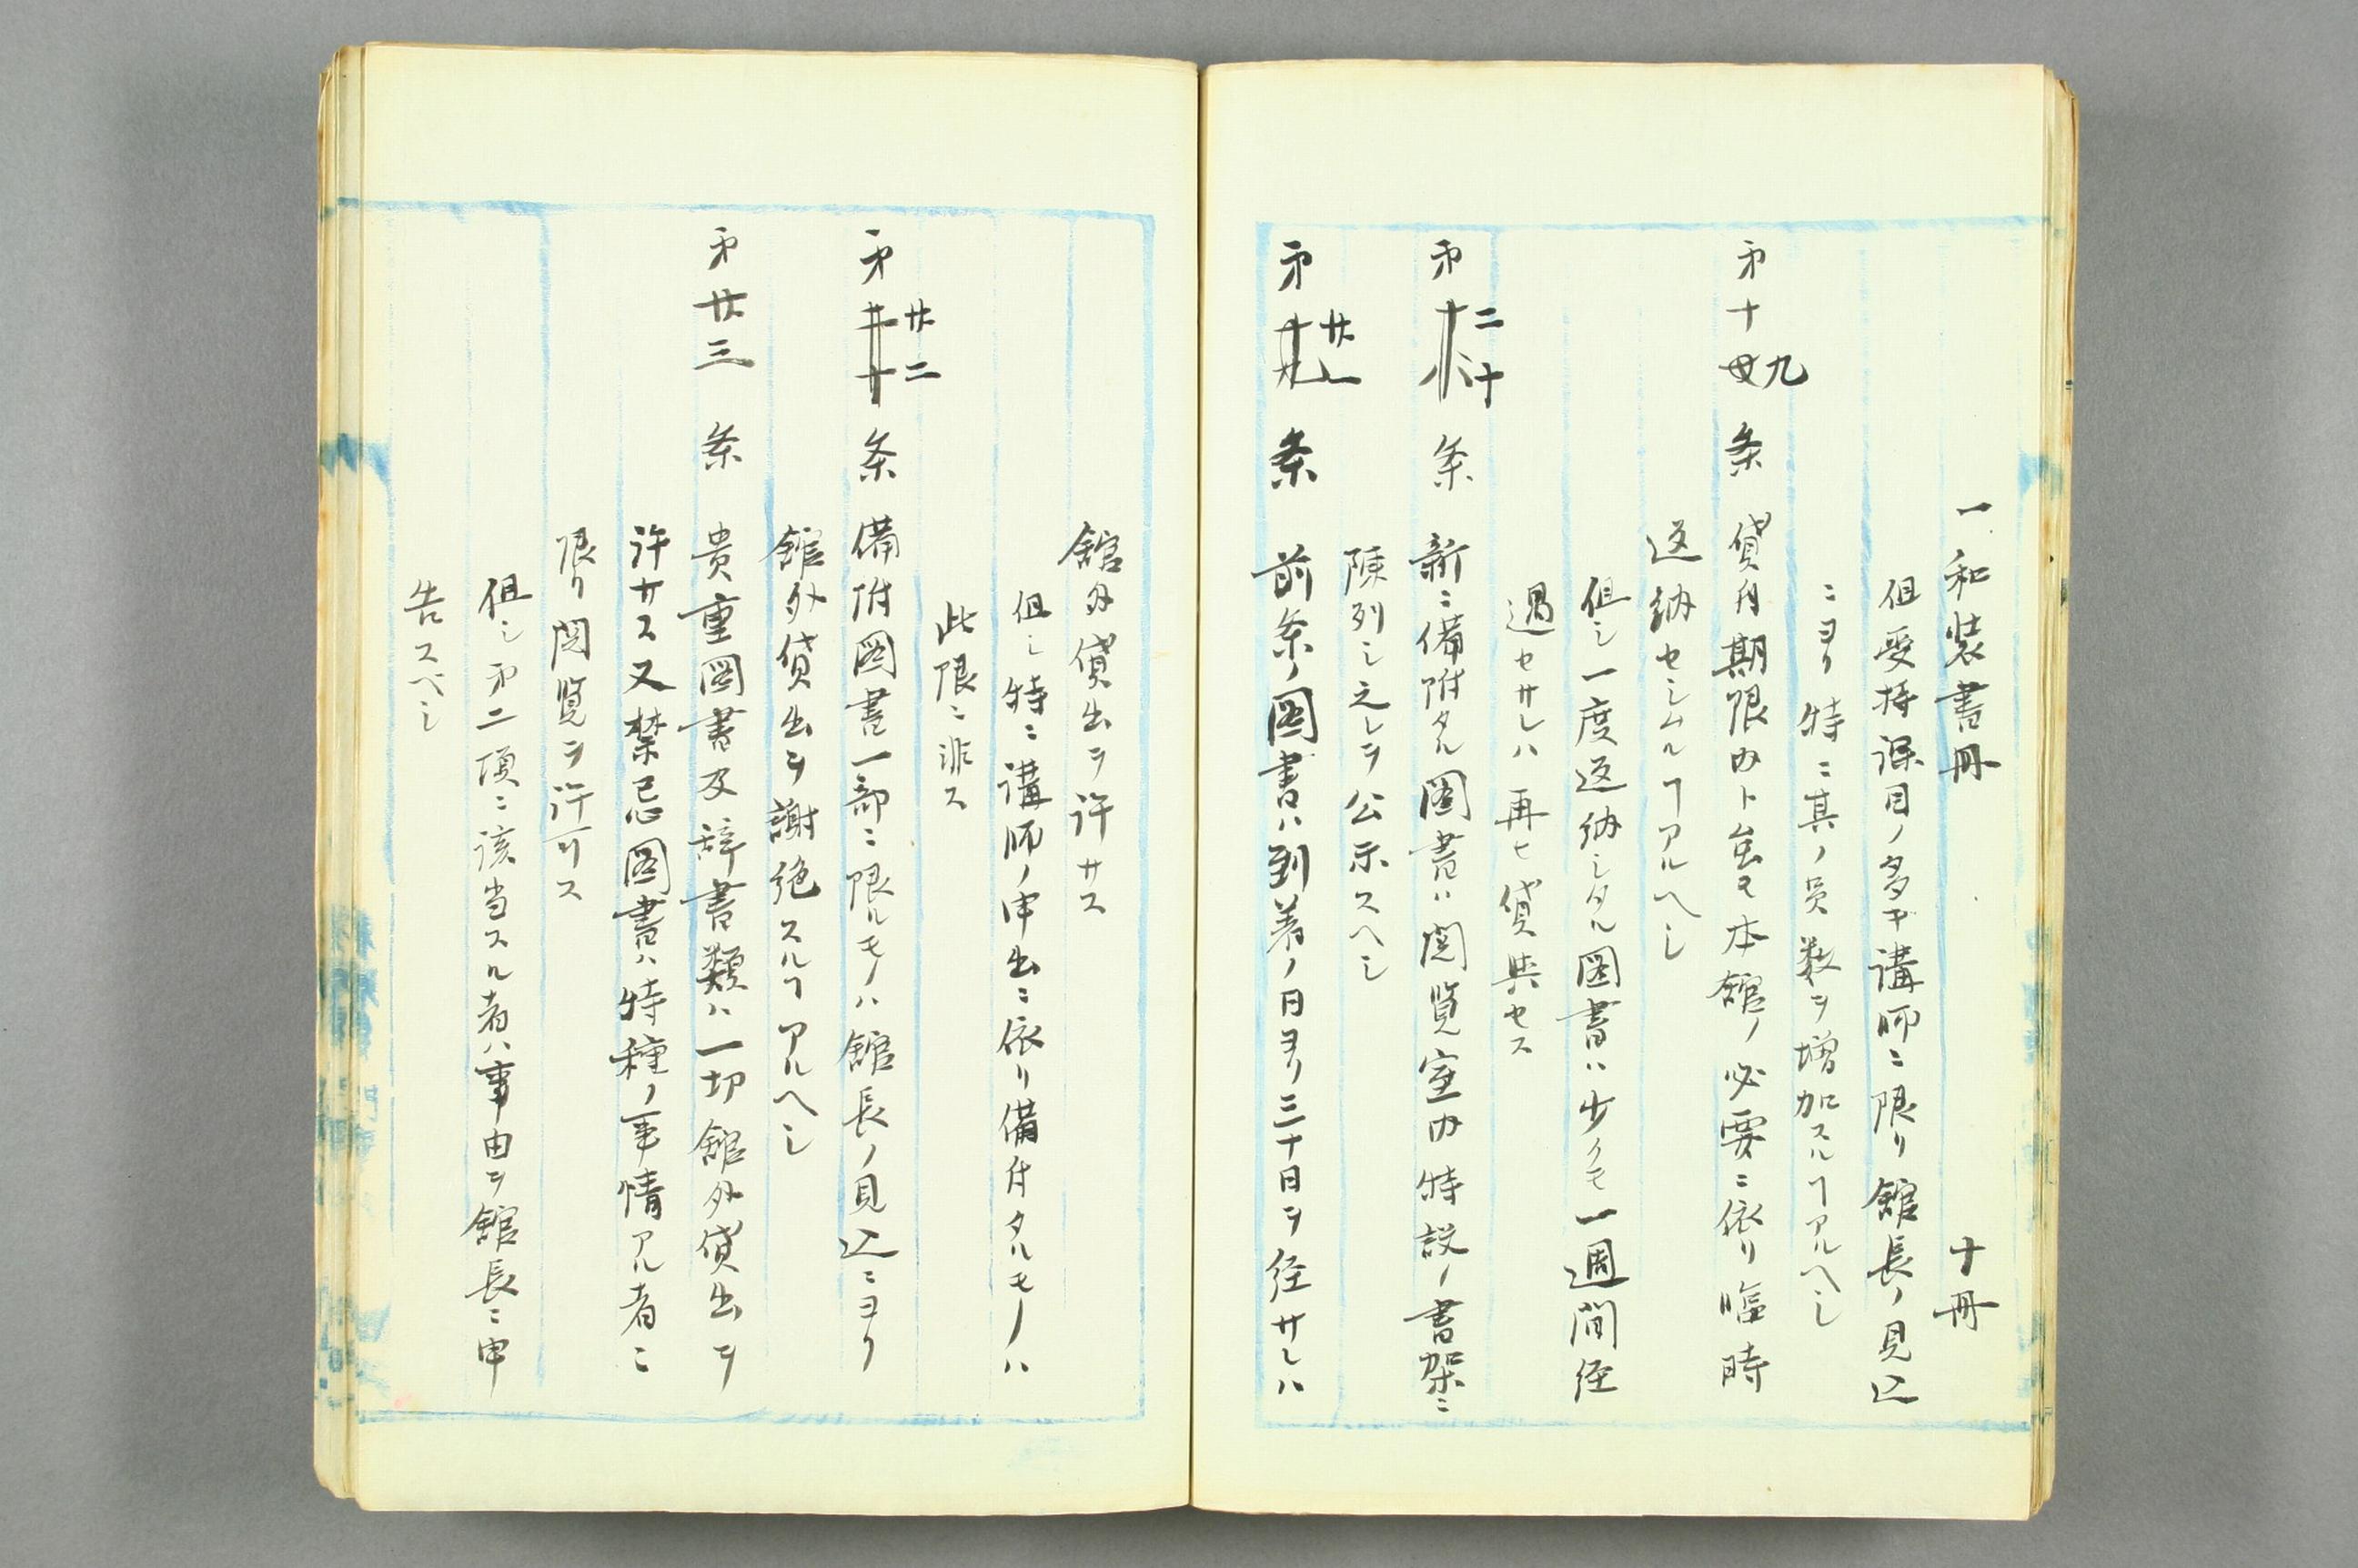 一和装書冊　十冊
但受持課目ノ多キ講師ニ限リ館長ノ見込
ニヨリ特ニ其ノ員数ヲ増加スルヿアルヘシ
第十九条　貸付期限内ト雖モ本館ノ必要ニ依リ臨時
返納セシムルヿアルヘシ
但シ一度返納シタル図書ハ少クモ一週間経
過セサレハ再ヒ貸与セス
第二十条　新ニ備附タル図書ハ閲覧室内特設ノ書架ニ
陳列シ之レヲ公示スヘシ
第廿一条　前条ノ図書ハ到着ノ日ヨリ三十日ヲ経サレハ
館外貸出ヲ許サス
但シ特ニ講師ノ申出ニ依リ備付タルモノハ
此限ニ非ス
第廿二条　備附図書一部ニ限ルモノハ館長ノ見込ニヨリ
館外貸出ヲ謝絶スルヿアルヘシ
第廿三条　貴重図書及辞書類ハ一切館外貸出ヲ
許サス又禁忌図書ハ特種ノ事情アル者ニ
限リ閲覧ヲ許可ス
但シ第二項ニ該当スル者ハ事由ヲ館長ニ申
告スベシ